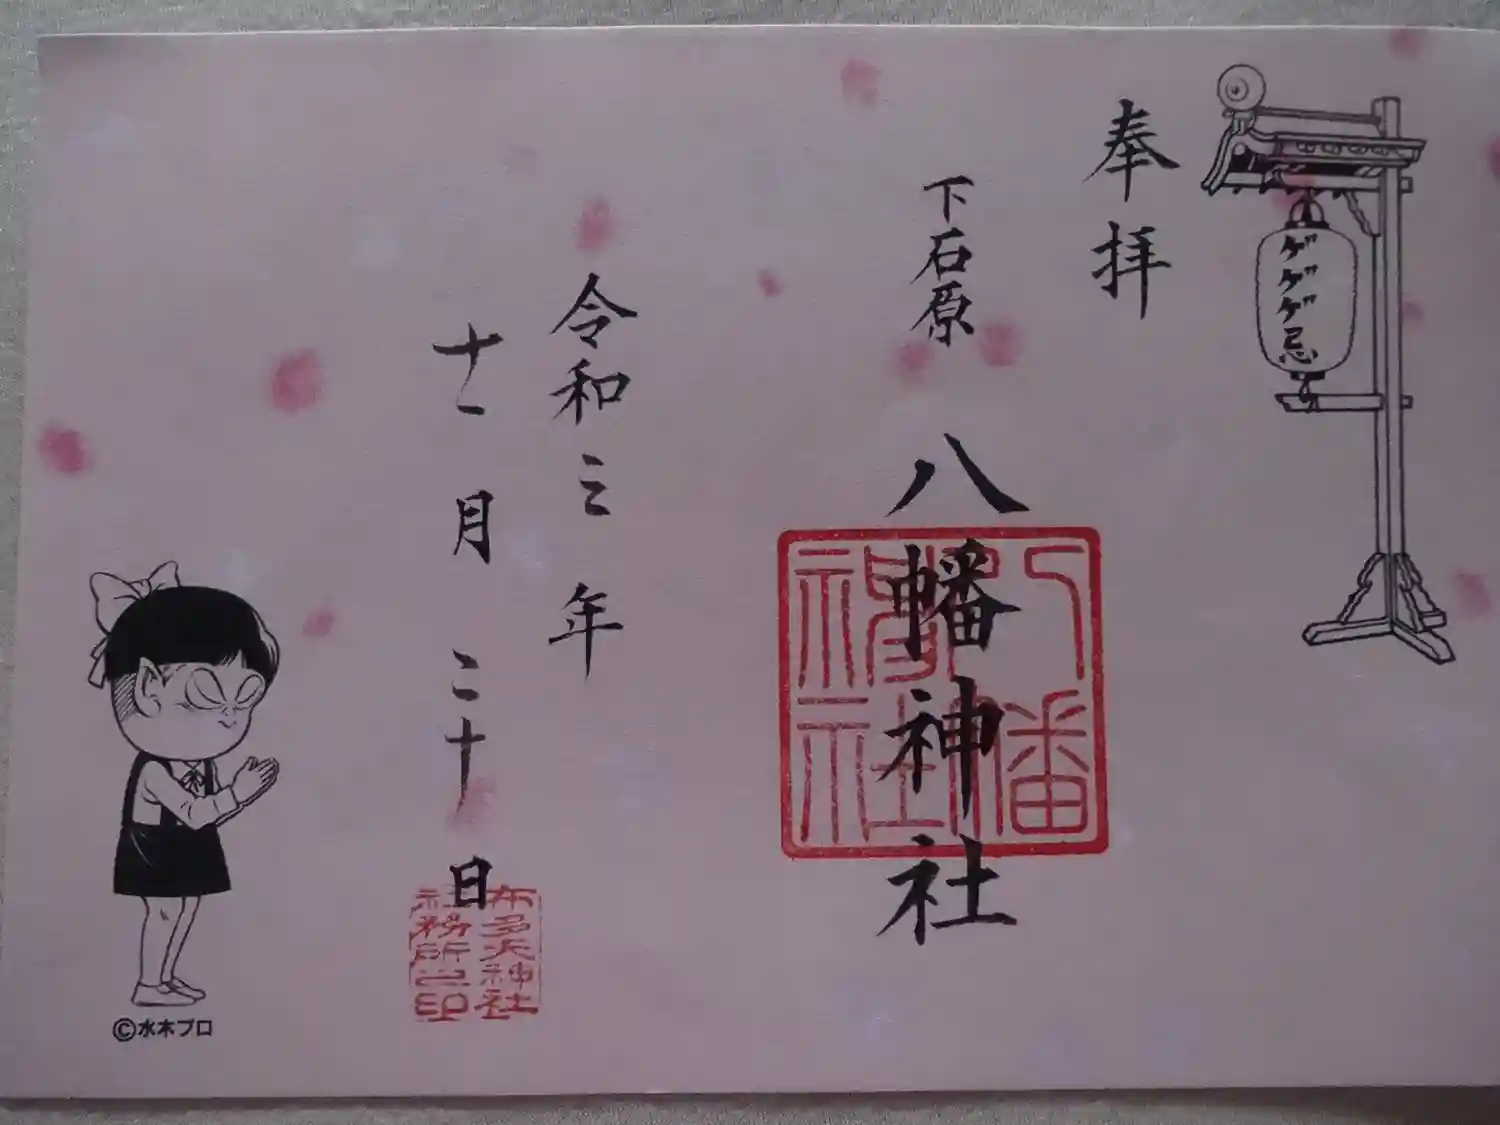 ゲゲゲ忌
奉拝
下石原
八幡神社
八幡神社
令和三年
十一月二十日
布多天神社
社務所之印
©水木プロ